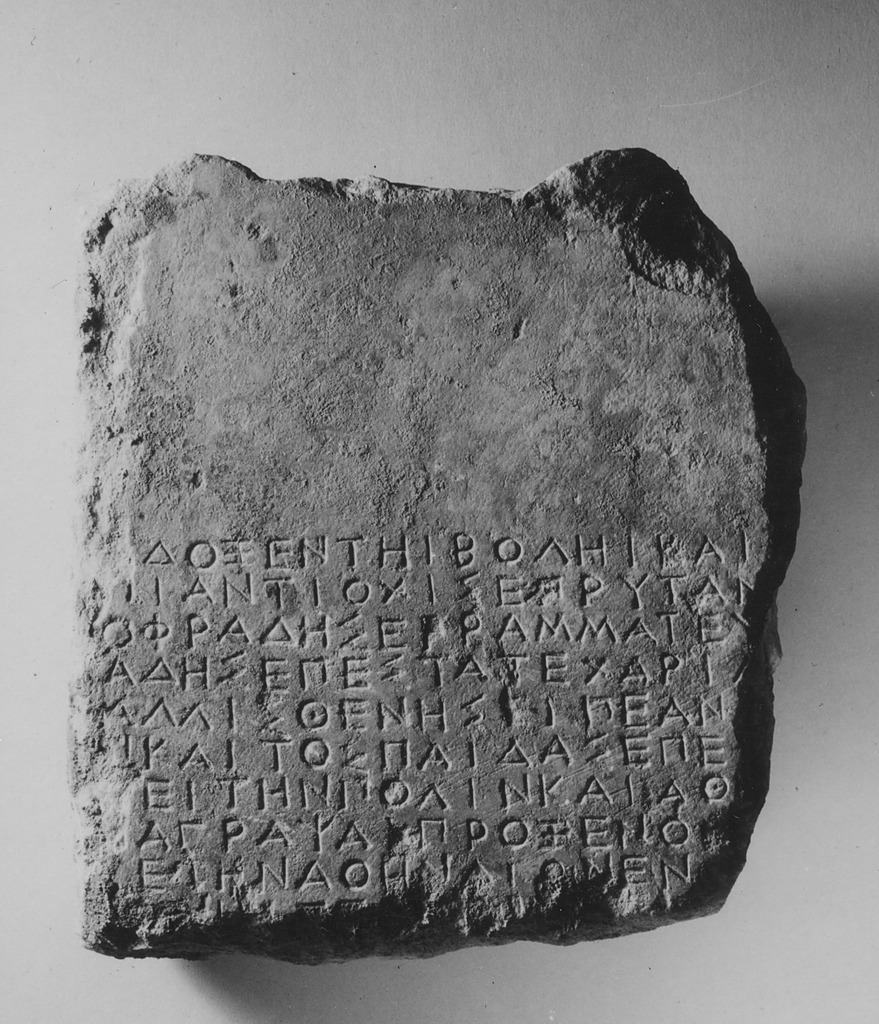 ΔΟΞΕΝΤΗΙΒΟΛΗΙΚΑΙ
ΙΑΝΤΙΟΧΙΣΕΠΡΥΤΑΝ
ΟΦΡΑΔΗΣΕΓΡΑΜΜΑΤΕΥ
ΑΔΗΣΕΠΕΣΤΑΤΕΧΑΡΙ
ΑΛΛΙΣΘΕΝΗΣΕΙΠΕΑΝ
ΚΑΙΤΟΣΠΑΙΔΑΣΕΠΕ
ΕΙΤΗΝΠΟΛΙΝΚΑΙΑΘ
ΑΓΡΑΨΑΙΠΡΟΞΕΝΟ
ΕΙΗΝΑΘΗΝΑΙΩΝΕΝ